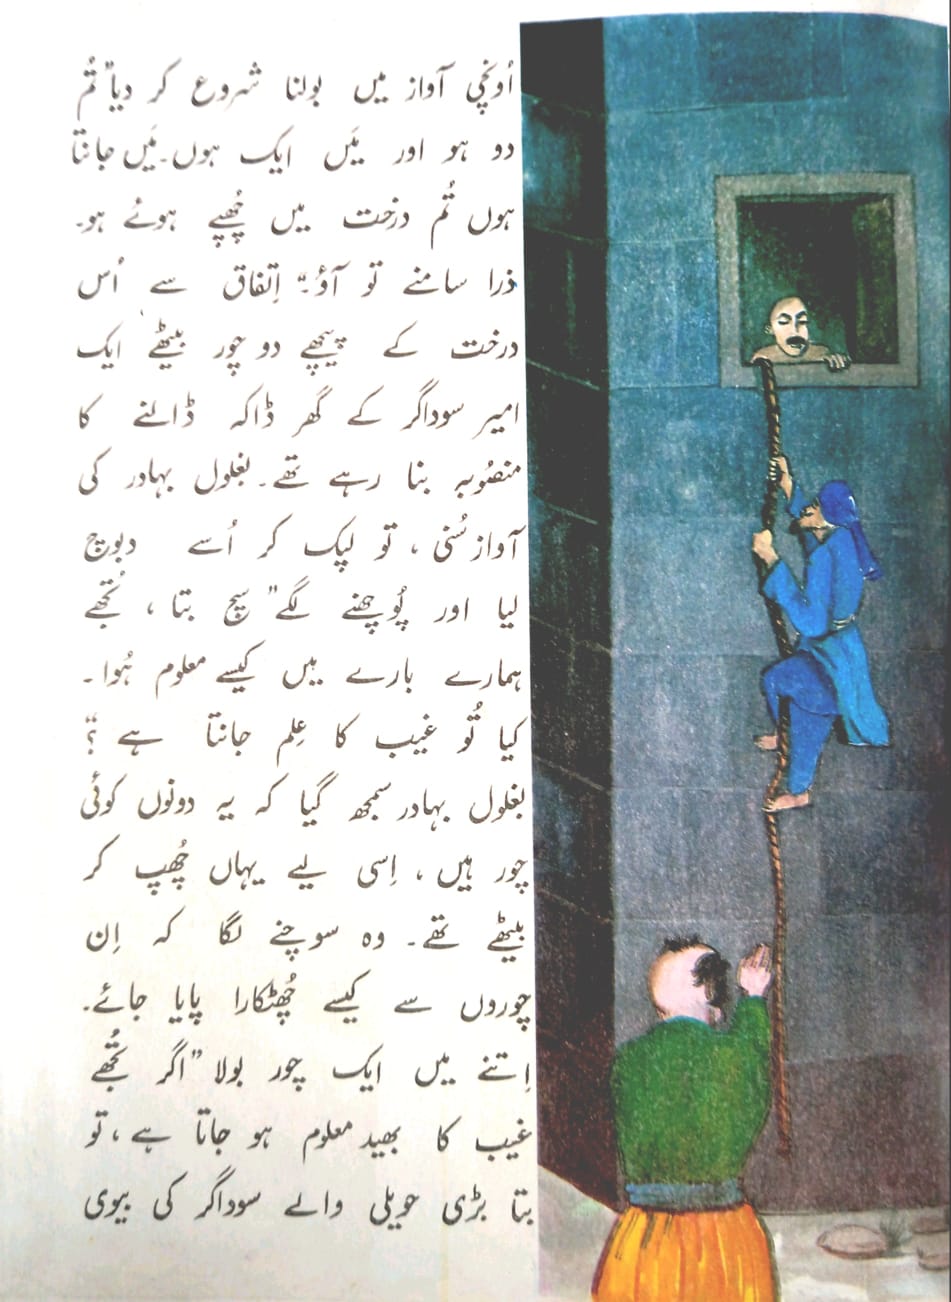 اُونچی آواز میں بولنا شروع کر دیا "تُم
دو ہو اور مَیں ایک ہوں۔ مَیں جانتا
ہوں تُم درخت میں چُھپے ہوئے ہو۔
ذرا سامنے تو آؤ۔" اِتفاق سے اُس
درخت کے پیچھے دو چور بیٹھے ایک
امیر سوداگر کے گھر ڈاکہ ڈالنے کا
منصُوبہ بنا رہے تھے۔ بغلول بہادر کی
آواز سُنی ، تو لپک کر اُسے دبوچ
لیا اور پُوچھنے لگے "سچ بتا ، تُجھے
ہمارے بارے میں کیسے معلوم ہُوا۔
کیا تُو غیب کا عِلم جانتا ہے ؟"
بغلول بہادر سمجھ گیا کہ یہ دونوں کوئی
چور ہیں ، اِسی لیے یہاں چُھپ کر
بیٹھے تھے۔ وہ سوچنے لگا کہ اِن
چوروں سے کیسے چُھٹکارا پایا جائے۔
اِتنے میں ایک چور بولا "اگر تُجھے
غیب کا بھید معلوم ہو جاتا ہے ، تو
بتا بڑی حویلی والے سوداگر کی بیوی